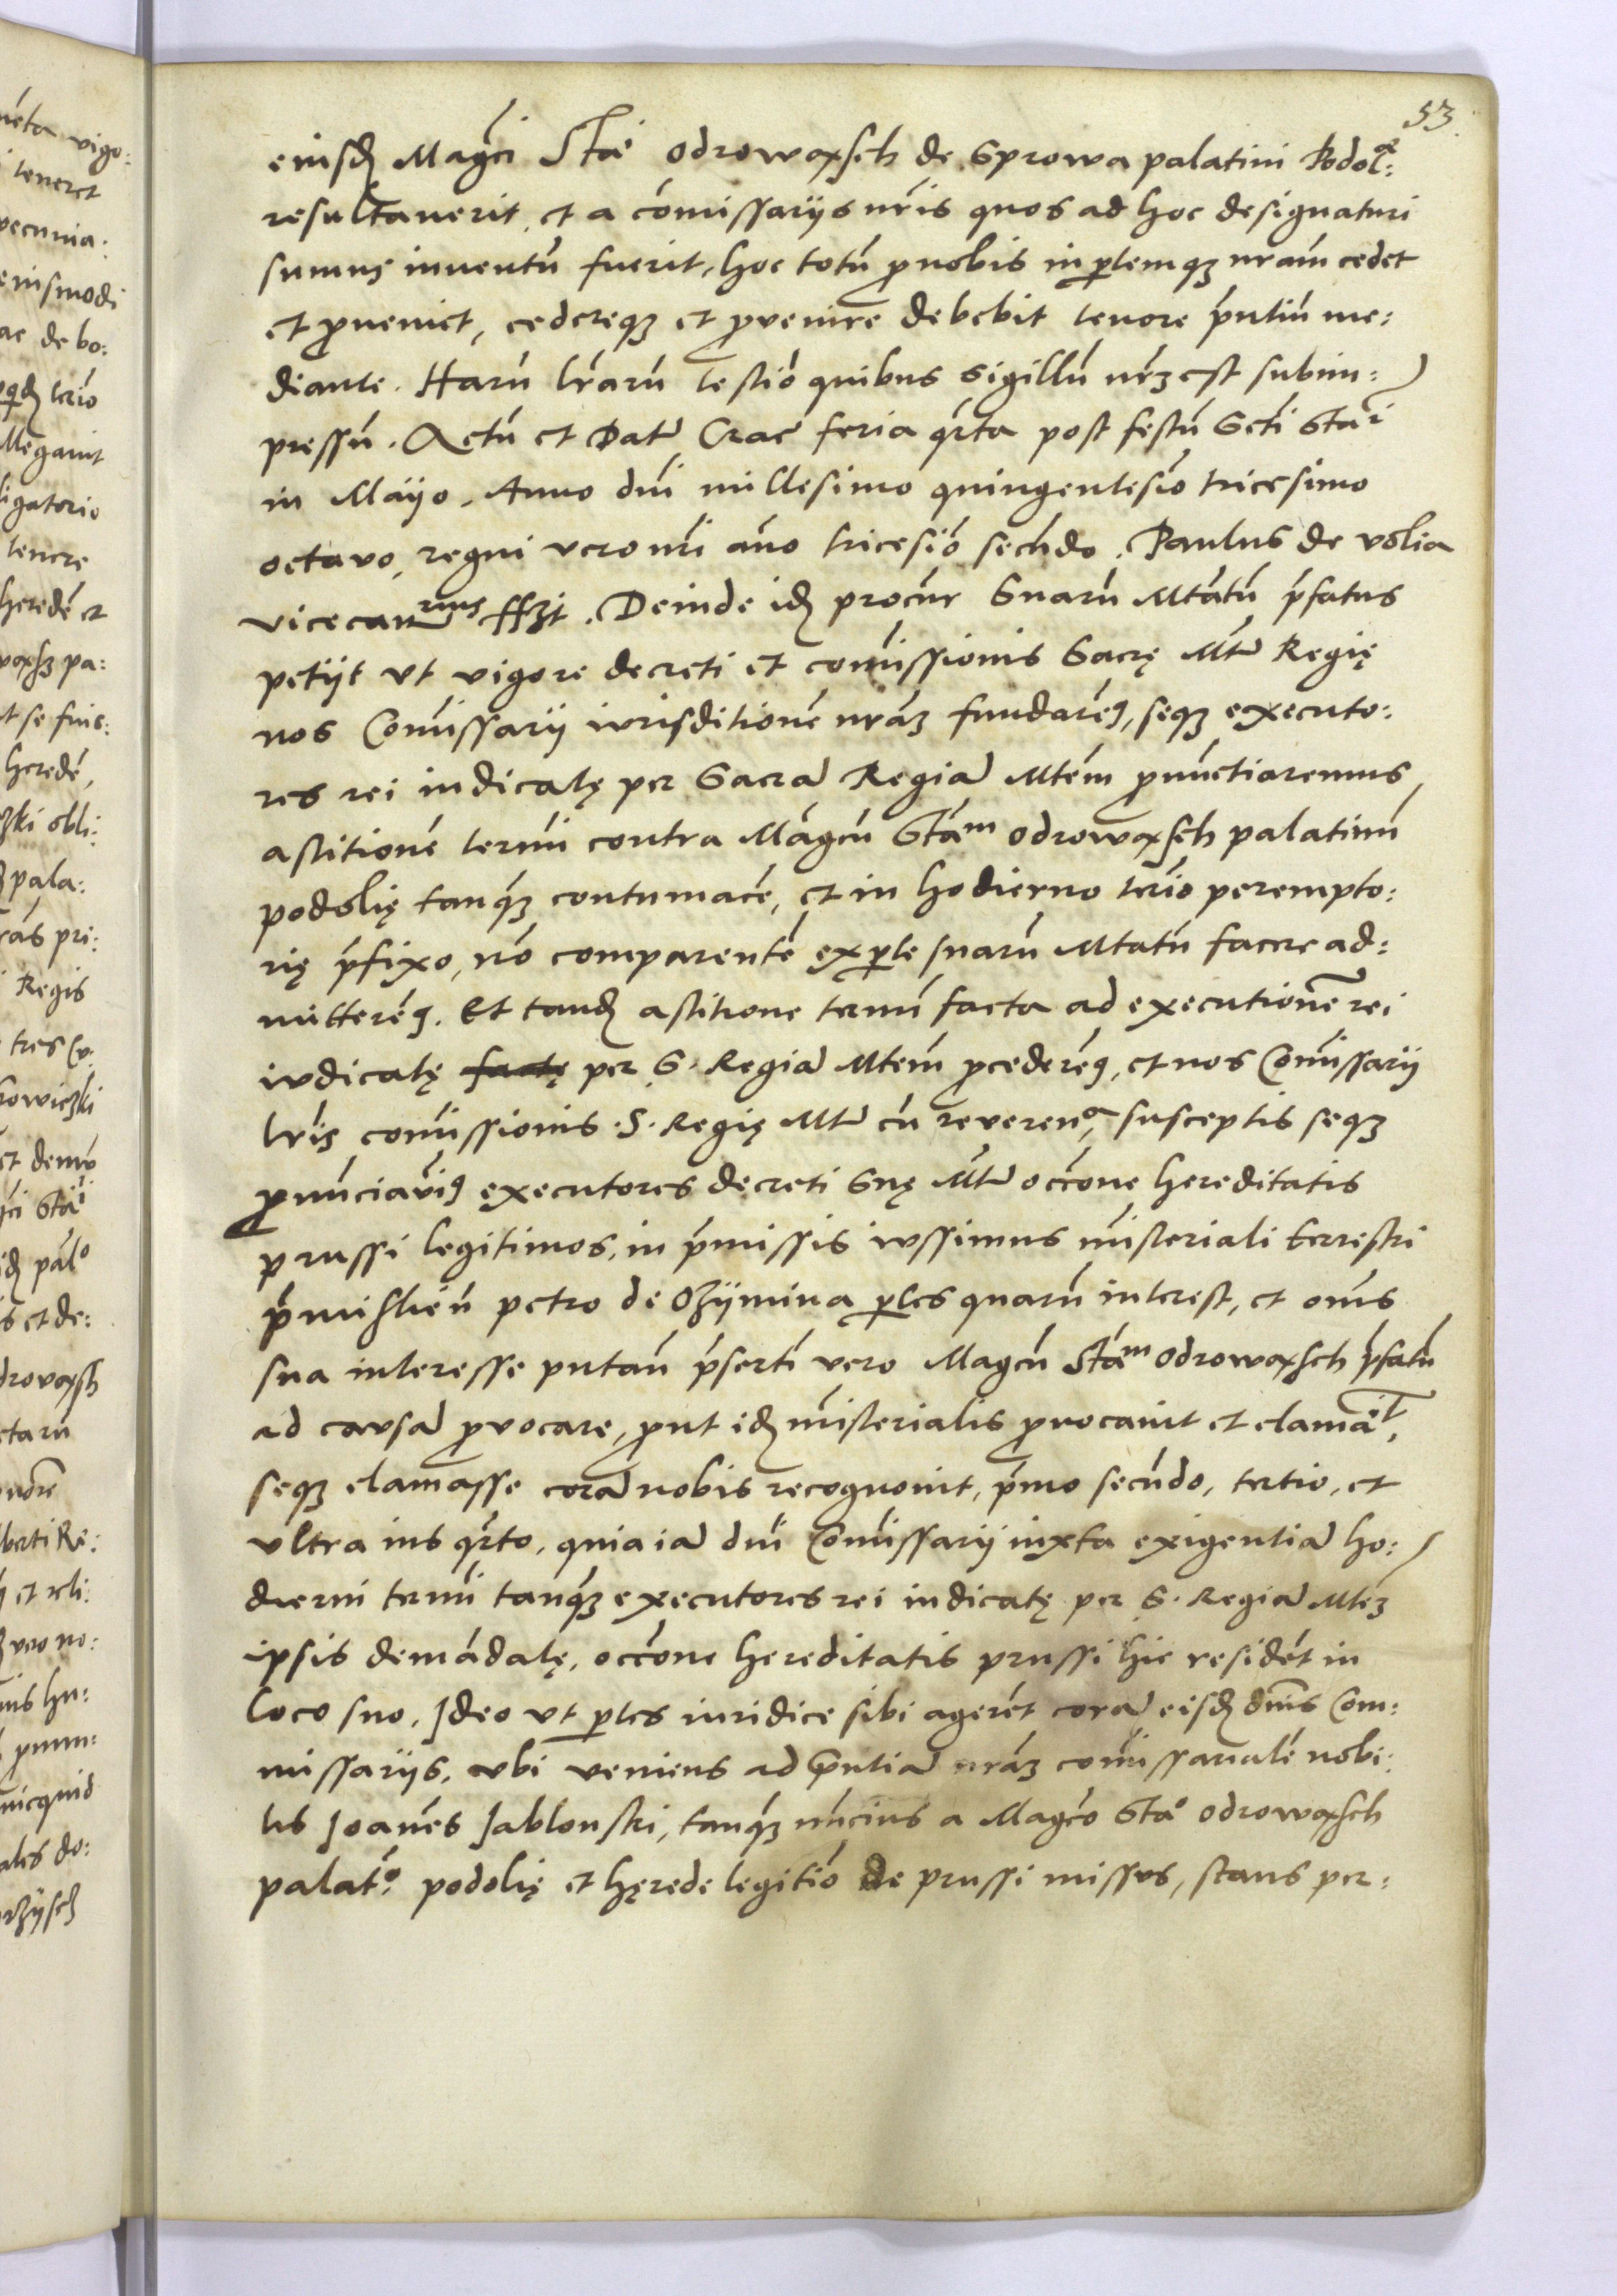 53.
eiusdꝫ Mag̃ci Sta̍ odrowasch de Sprowa palatini Podolᵉ:
resultauerit, et a com̃issariis nr̃is quos ad hoc designaturi
sumus inuentũ fuerit, hoc totũ ꝓ nobis in ꝑtemqꝫ nr̃am cedet
et ꝓueniet, cedereqꝫ et ꝓvenire debebit tenore pñtiũ me:
diante. Harũ lr̃arũ testiõ quibus sigillũ nr̃ꝫ est subim:
pressũ. Actũ et Datũ Crac̃ feria qr̃ta post festũ Scti Staⁱ
in Maÿo. Anno dñi millesimo quingentesiõ tricesimo
octavo, regni vero nr̃i año tricesiõ secũdo. Paulus de volia
vicecan̄rius sszt. Deinde idꝫ procũr Suarũ Mtãtũ p̃fatus
petijt vt vigore decreti et com̃issionis Sacrę Mt̃ꝭ Regię
nos Com̃issarij iurisditionẽ nr̃aꝫ fundarẽꝯ, seqꝫ executo:
res rei iudicatę per Sacrã Regiã Mtẽm ꝓnũctiaremus,
astitionẽ term̃i contra Mãgcũ Stãᵐ odrowasch palatinũ
podolię tanqꝫ contumacẽ, et in hodierno terĩo perempto:
rię p̃fixo, nõ comparentẽ ex ꝑte suarũ Mtatũ facere ad:
mitterẽꝯ. Et tandꝫ astitione term̃i facta ad executionẽ rei
iudicatę factę per S. Regiã Mtẽm ꝓcederẽꝯ, et nos Com̃issarij
lr̃is com̃issionis .S. Regię Mt̃ꝭ cũ reverenᵃ, susceptis seqꝫ
ꝓnũnciavĩꝯ executores decreti Suę Mt̃ꝭ occõne hereditatis
prussi legitimos, in p̃missis iussimus mĩsteriali terrestri
p̃mislieñ petro de Ozÿmina ꝑtes quarũ interest, et om̃s
sua interesse putañ p̃sertĩ vero Magcũ Stãᵐ odrowasch p̃fatũ
ad causã ꝓvocare, ꝓut idꝫ mĩsterialis ꝓuocauit et clamãᵗ,
seqꝫ clamasse corã nobis recognouit, p̃mo secũdo, tertio, et
vltra ius qr̃to, quia iã dñi Com̃issarij iuxta exigentiã ho:
dierni term̃i tanqꝫ executores rei iudicatę per S. Regiã Mteꝫ
ipsis demãdatę, occõne hereditatis prussi hic residẽt in
loco suo, Ideo vt ꝑtes iuridice sibi agerẽt corã eisdꝫ dñis Com:
missariis, vbi veniens ad p̃ntiã nr̃aꝫ com̃issarialẽ nobi:
lis Joañes Jablonski, tanqꝫ nũcius a Magcõ Sta° odrowasch
palatõ: podolię et hęrede legitiõ de prussi missus, stans per: